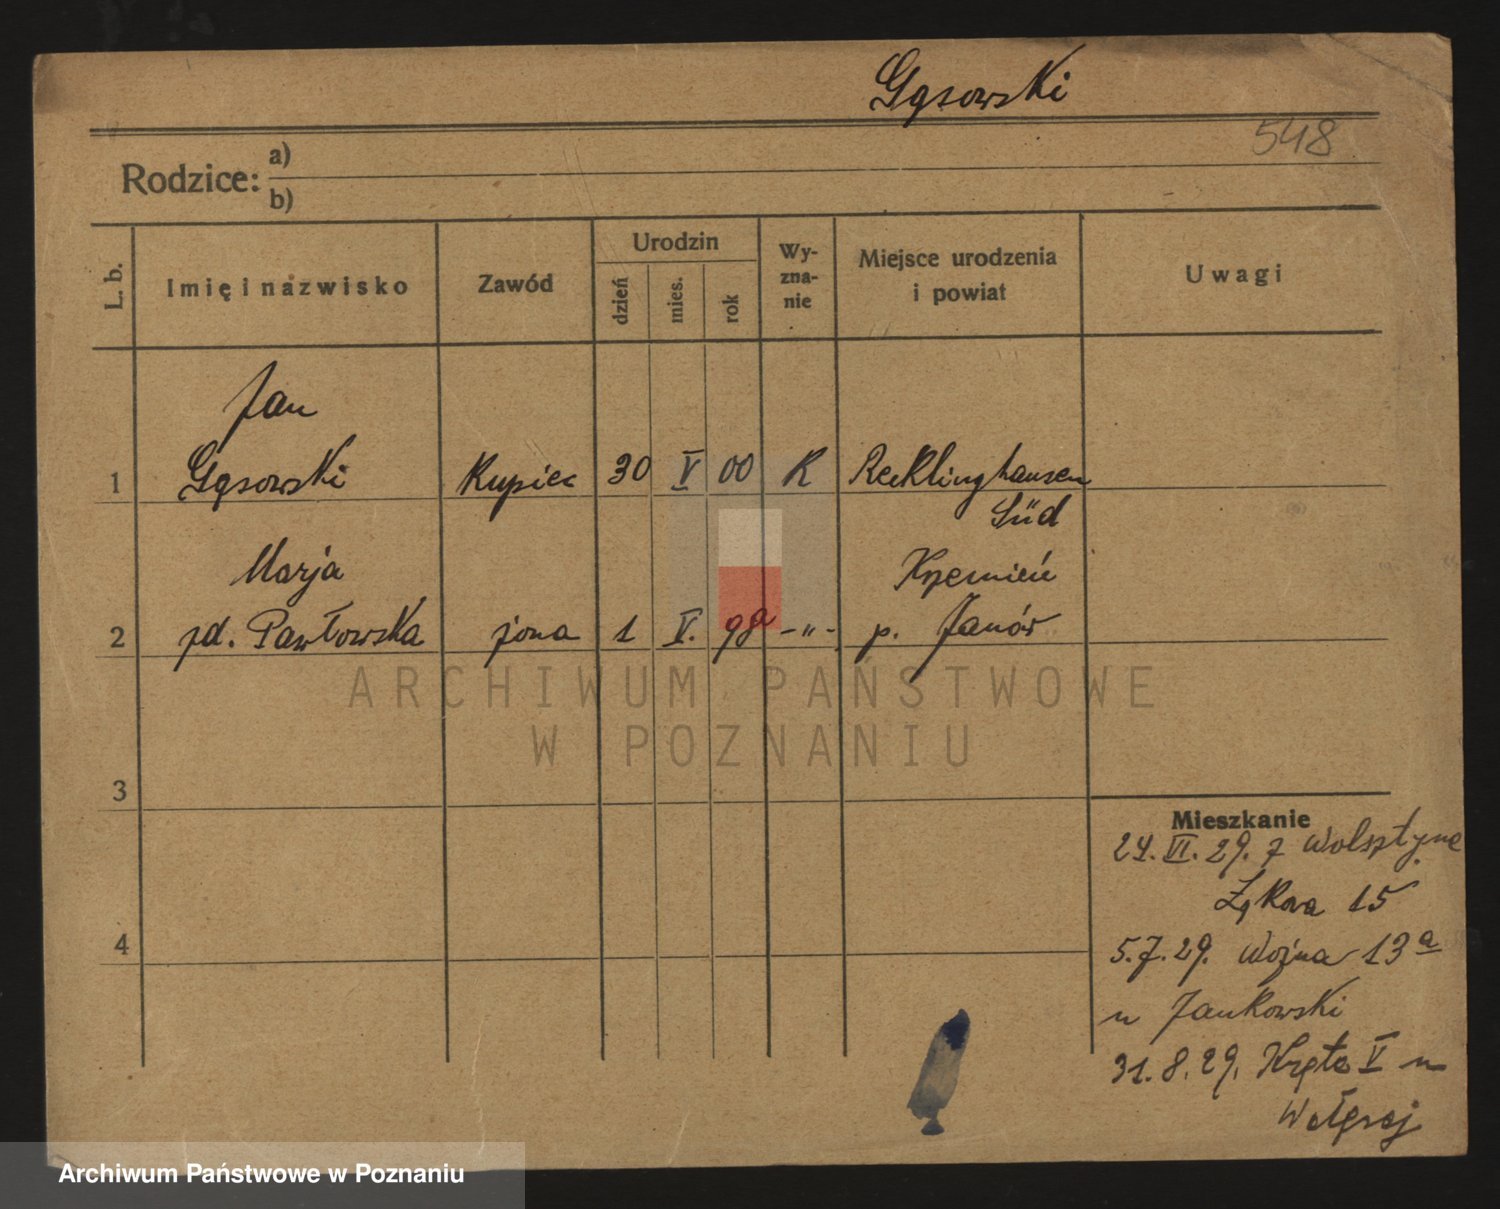 Gąsowski
548
Rodzice: a)
b)
L. b.
Imię i nazwisko
Zawód
Urodzin
dzień
mies.
rok
Wy-
zna-
nie
Miejsce urodzenia
i powiat
Uwagi
Jan
1 Gąsowski Kupiec 30 V 00 K Recklinghausen
Süd
Marja
2 zd. Pawłowska żona 1 V. 98 -"- p. Janów
3
4
Mieszkanie
24. VI. 29. z Wolsztyna
Łąkowa 15
5.7.29. Woźna 13a
u Jankowski
31.8.29. Kręta V u
ARCHIWUM PAŃSTWOWE
W POZNANIU
Archiwum Państwowe w Poznaniu